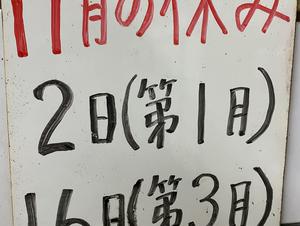 11月の休み
2日(第1月)
16日(第3月)